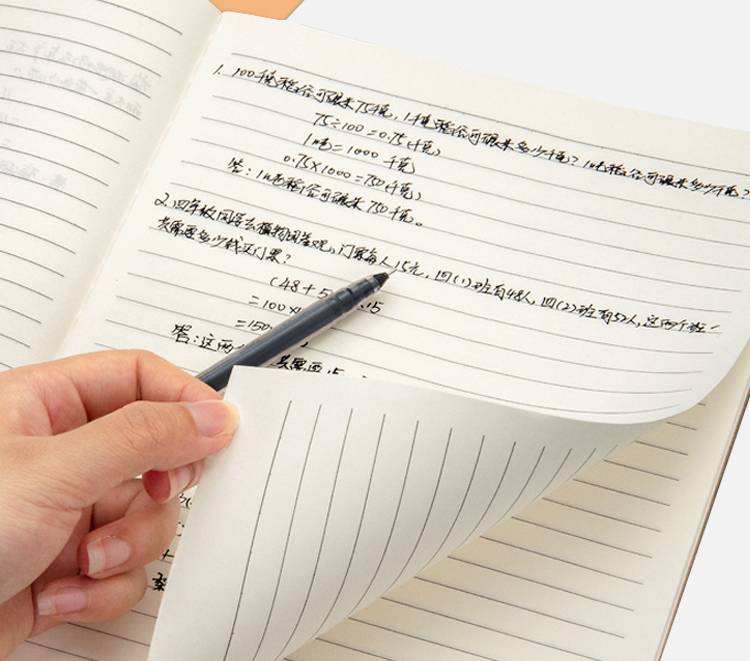 1. 100千克稻谷可碾米75千克，1千克稻谷可碾米多少千克？1吨稻谷可碾米多少千克？
75÷100=0.75(千克)
1吨=1000千克
0.75×1000=750(千克)
答：1吨稻谷可碾米750千克。
2. 四年级同学去植物园参观，门票每人15元，四(1)班有48人，四(2)班有52人，这两个班一
共需要多少钱买门票？
(48+5 15
=100×1
=150
答：这两 共需要15